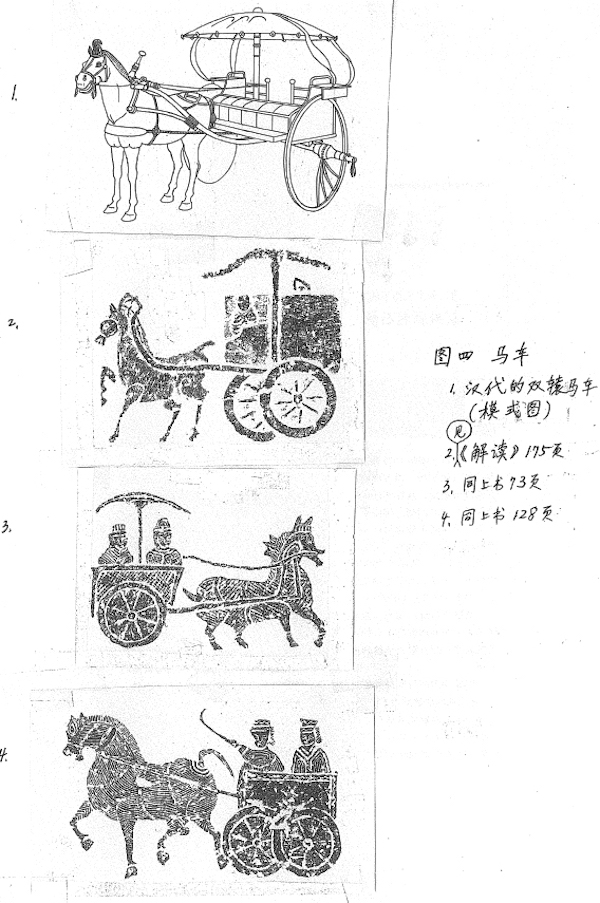 1.
2.
3.
4.
图四 马车
1. 汉代的双辕马车
(模式图)
见
2.《解读》175页
3. 同上书73页
4. 同上书128页